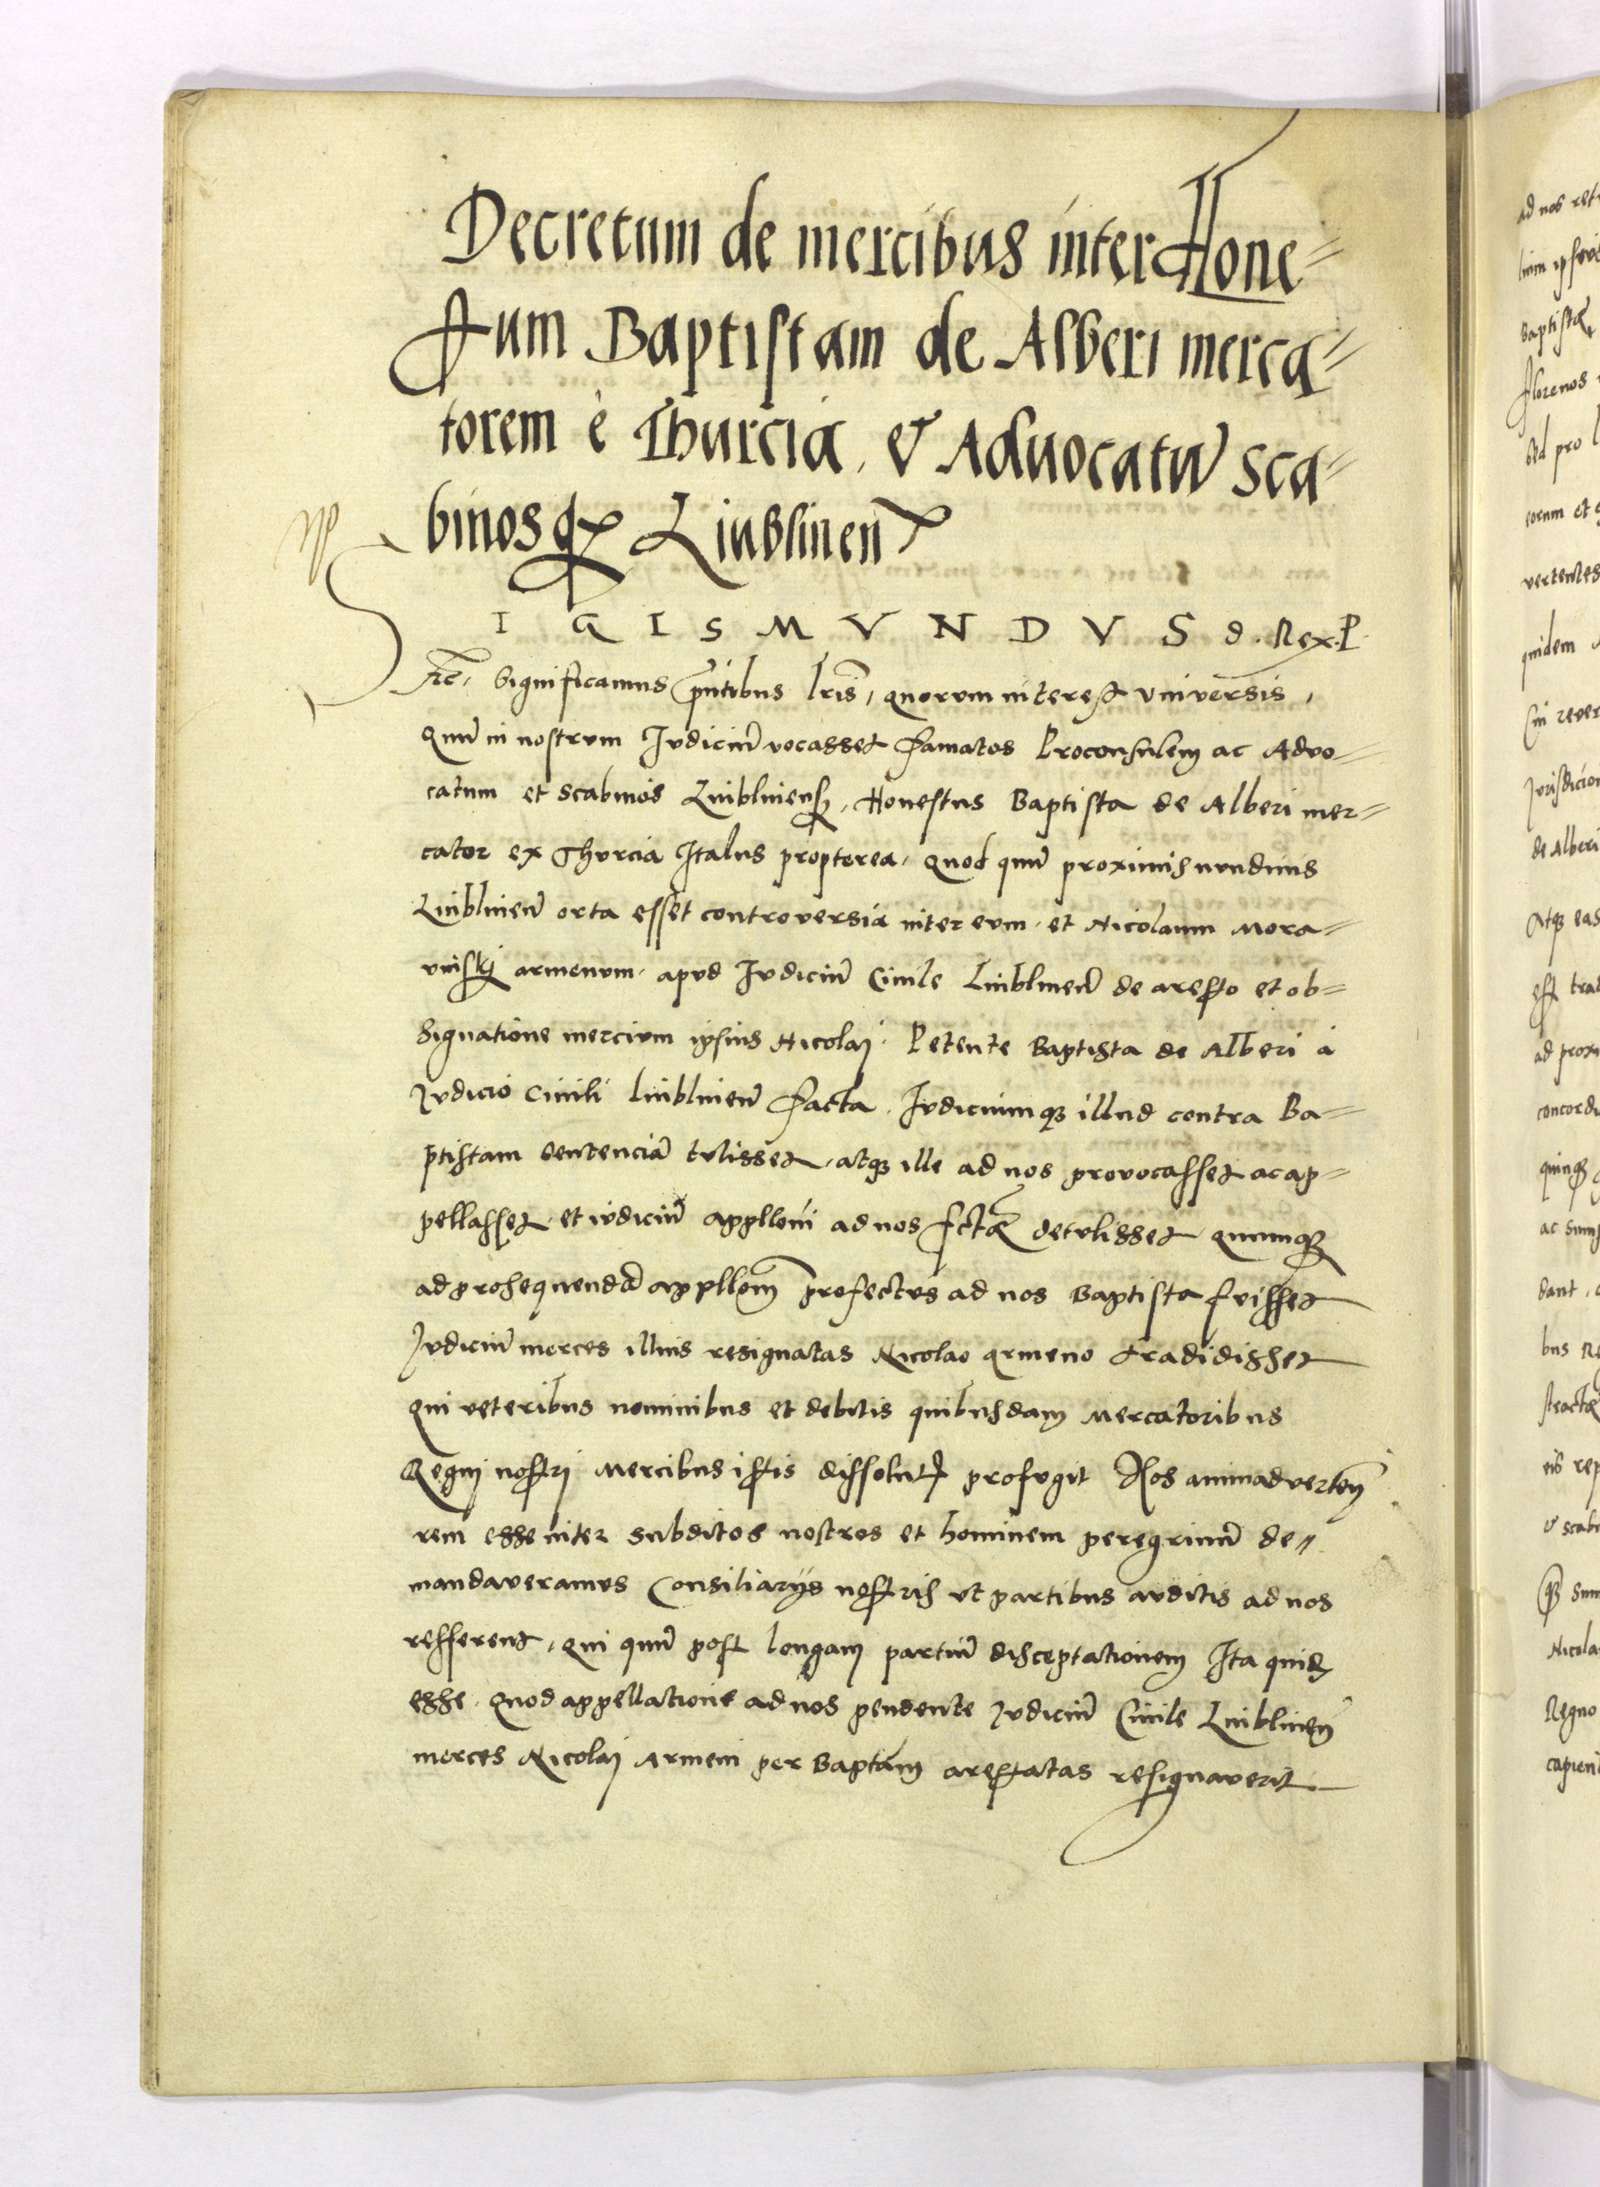 Decretum de mercibus inter Hone=
stum Baptistam de Alberi merca=
torem è Thurcia, & Aduocatū sca=
binosq; Liublinen
SIGISMVNDVS d. Rex. P.
rc̄, Significamus p̄ntibus lris̄, quorum interest vniversis,
Quū in nostrvm Ivdiciū vocasset famatos Proconsulem ac Advo=
catum et scabinos Liublinens̄, Honestus Baptista de Alberi mer=
cator ex Thvrcia Italus propterea, quod quū proximis nvndinis
Liublinen̄ orta esset controversia inter evm, et Nicolaum Mora=
vinskj armenvm, apvd Ivdiciū Ciuile Liublinen̄ de aresto et ob=
signatione mercivm ipsius Nicolaj. Petente Baptista de Alberi à
Jvdicio Ciuili liublinen̄ facta. Ivdiciumq; illud contra Ba=
ptistam sentenciā tvlisset, atq; ille ad nos provocasset ac ap=
pellasset, et ivdiciū applloni ad nos fctæ detvlisset, quumq;
ad prosequendā appllonē profectvs ad nos Baptista fvisset
Jvdiciū merces illius resignatas Nicolao armeno tradidisset
qui veteribus nominibus et debitis quibusdam Mercatoribus
Regni nostri Mercibus istis dissolut profvgit Nos animadverten̄
rem esse inter subditos nostros et hominem peregrinū de=
mandaveramvs Consiliarijs nostris vt partibus avditis ad nos
refferent, qui quū post longam partiū disceptationem Ita quidē
esse, quod appellatione ad nos pendente Jvdiciū Ciuile Liublinen̄
merces Nicolaj Armeni per Baptam̄ arestatas resignaverit
ad nos ret
Baptistæ
florenos
sed pro l
eorum et
vertentes
quidem
Jvrisdicion
de Alberi
Atq; eas
est tra
ad proxi
concordi
quinq;
dant,
bus Re
eis rep
& scabi
Nicola
Regno
capieni